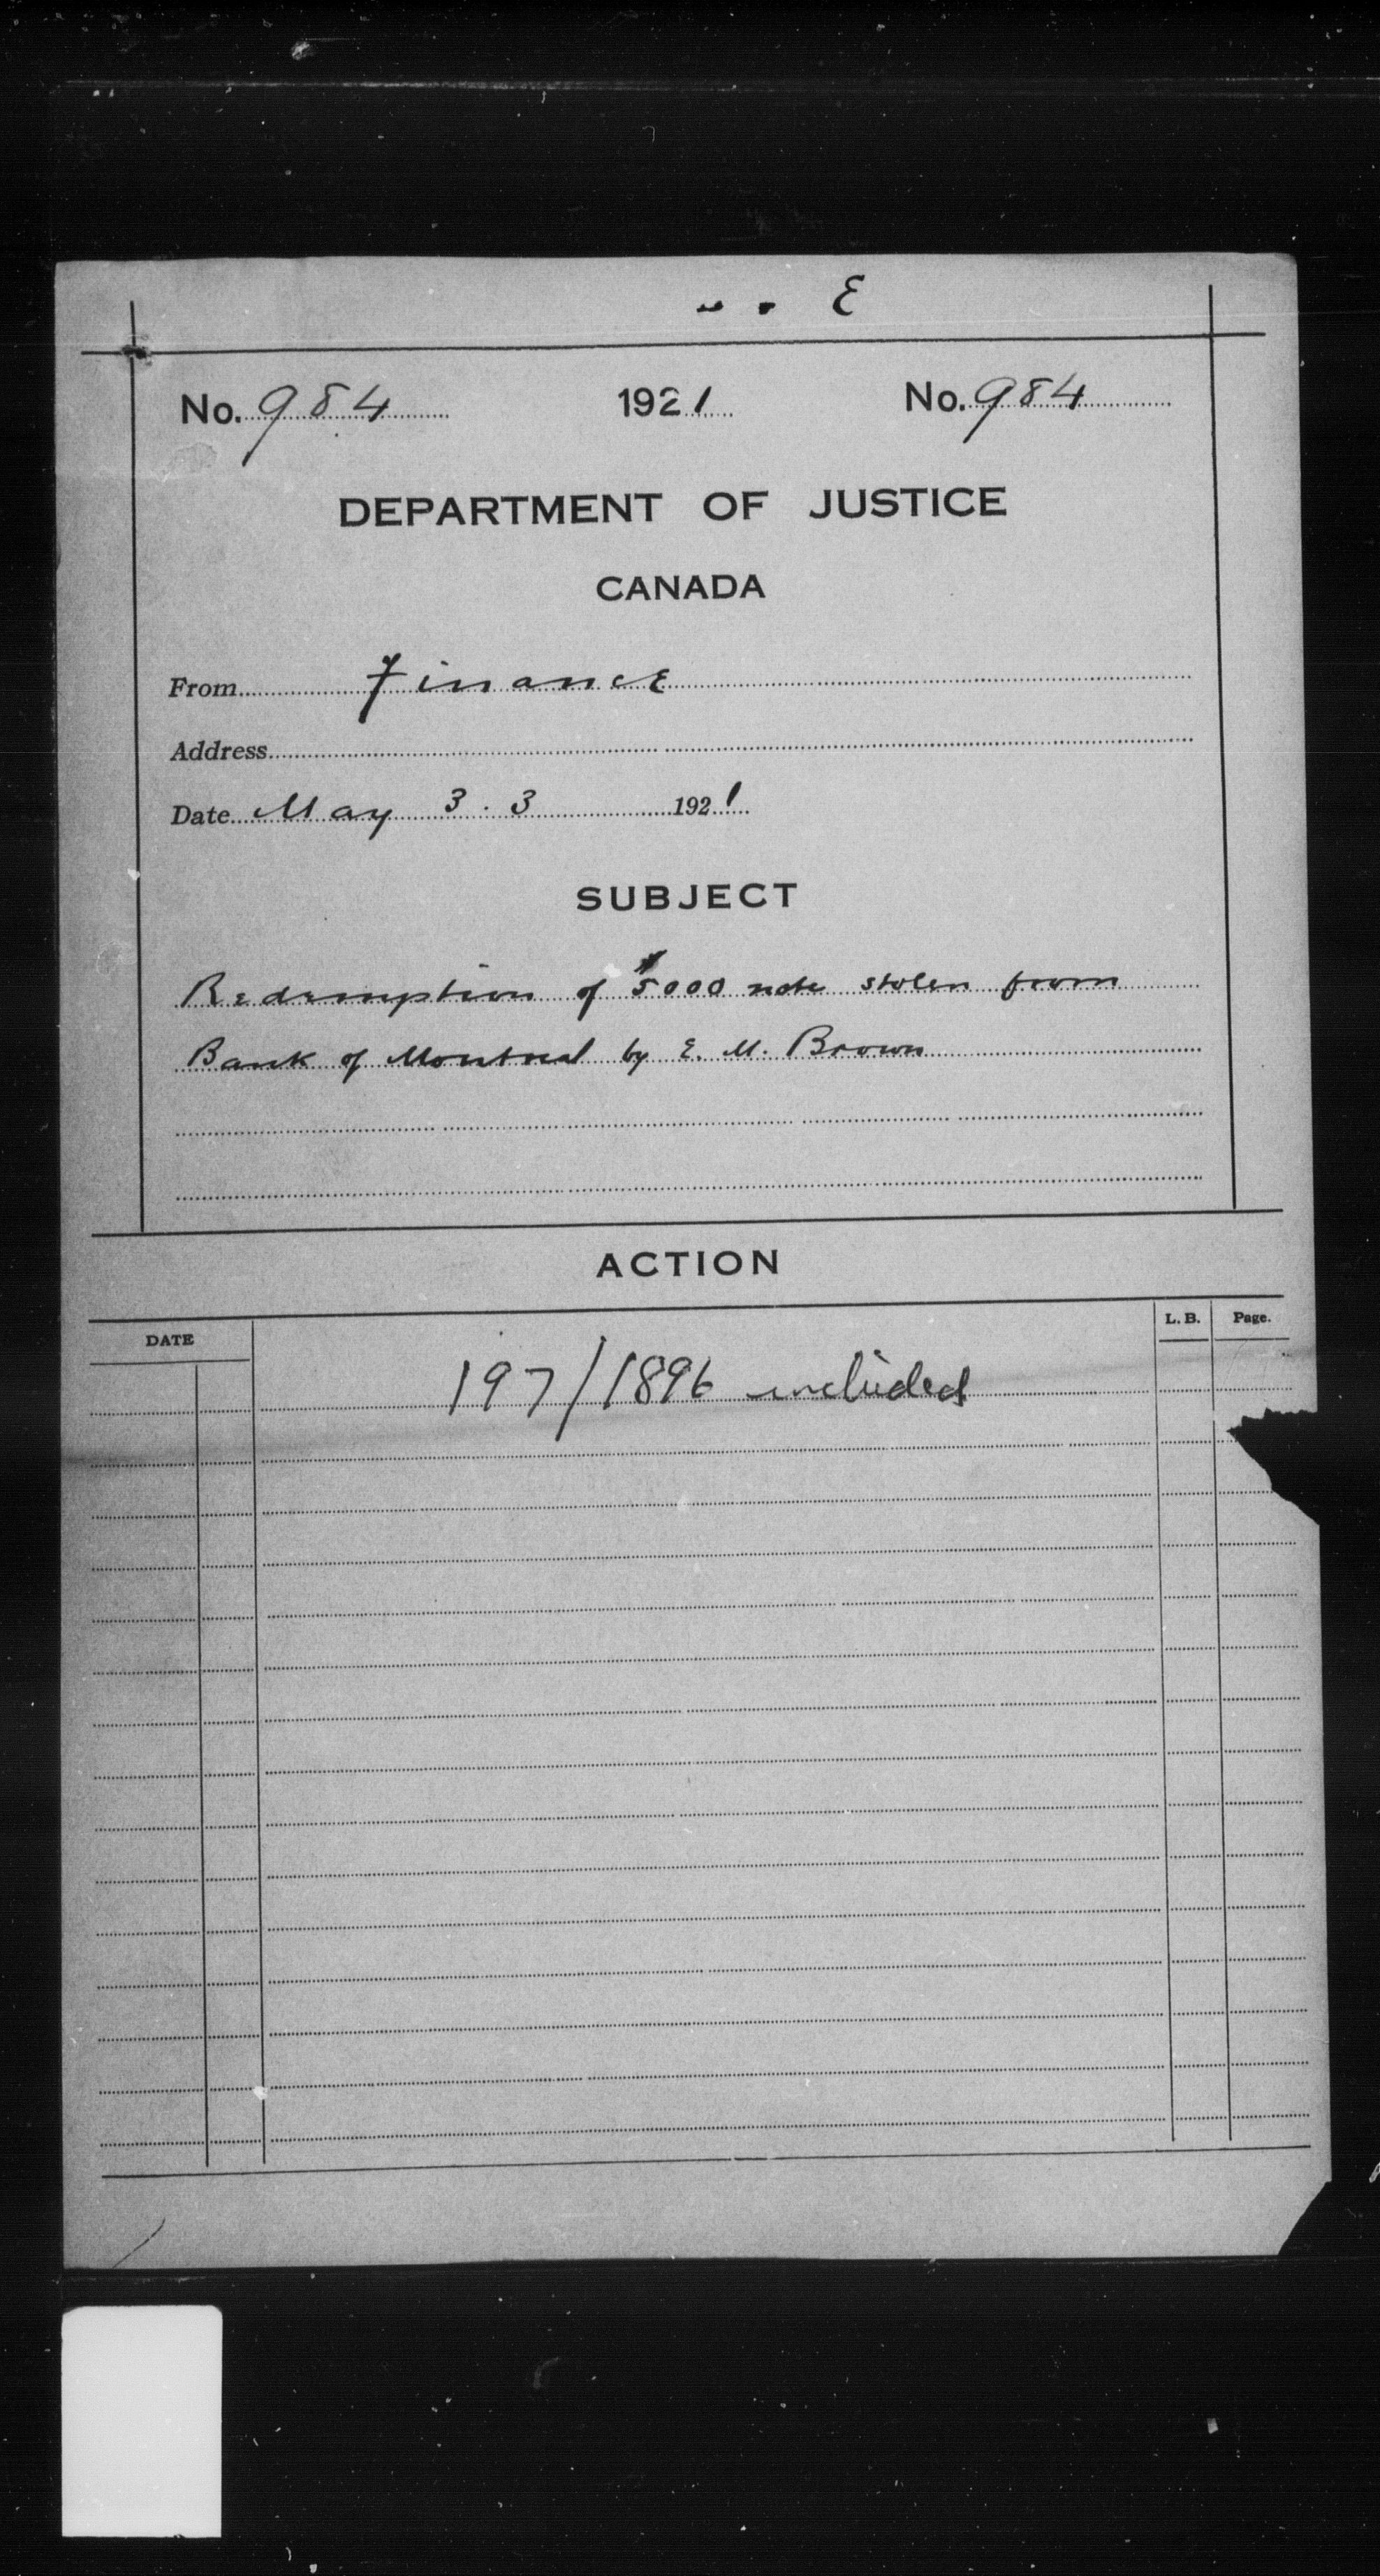 E
No. 984 1921 No. 984
DEPARTMENT OF JUSTICE
CANADA
From Finance
Address
Date May 3. 3 1921
SUBJECT
Redemption of $5000 note stolen from
Bank of Montreal by E. M. Brown
ACTION
DATE L. B. Page.
197/1896 included